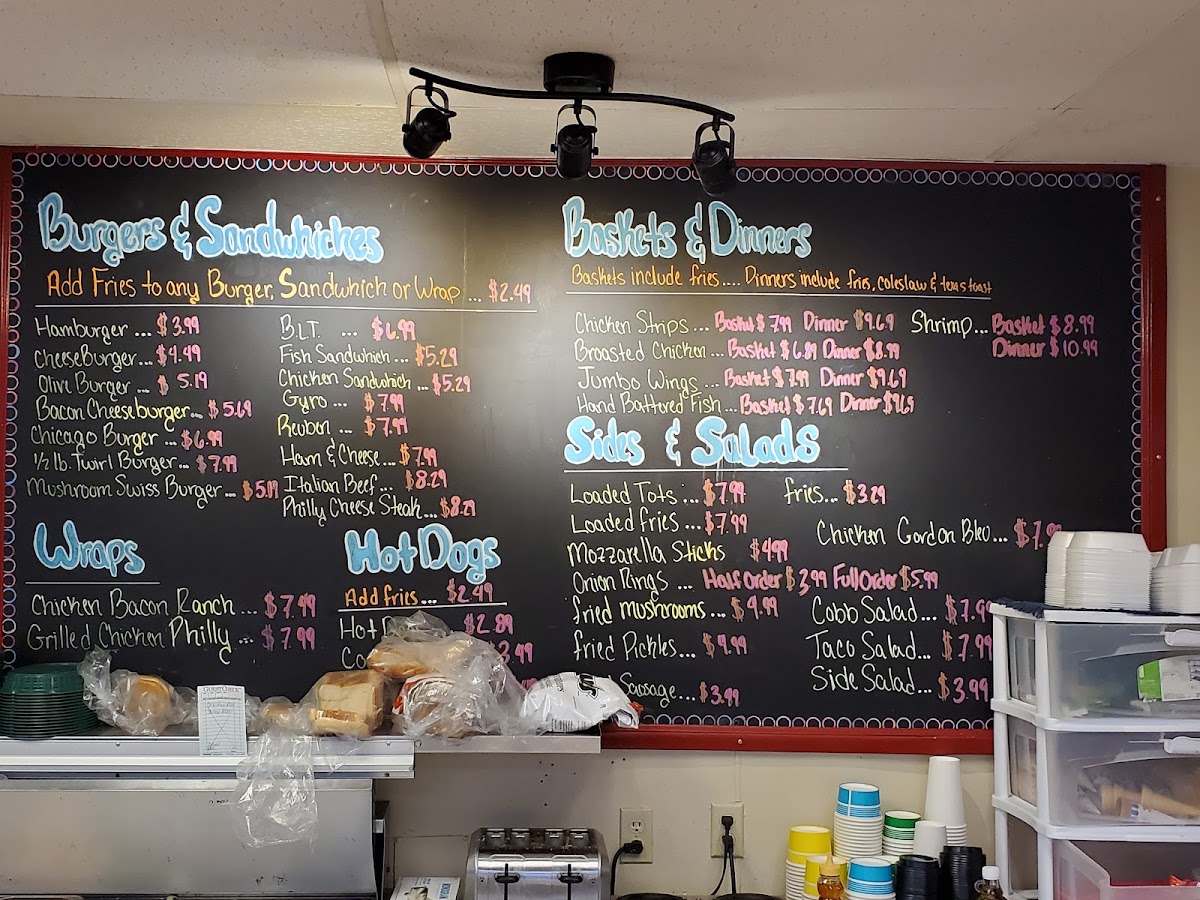 Burgers & Sandwhiches
Add Fries to any Burger, Sandwhich or Wrap ... $2.49
Hamburger ... $3.99
CheeseBurger... $4.49
Olive Burger ... $5.19
Bacon Cheeseburger... $5.69
Chicago Burger ... $6.99
1/2 lb. Twirl Burger... $7.99
Mushroom Swiss Burger... $5.19
B.L.T. ... $6.99
Fish Sandwhich ... $5.29
Chicken Sandwhich ... $5.29
Gyro ... $7.99
Reuben ... $7.99
Ham & Cheese... $7.99
Italian Beef... $8.29
Philly Cheese Steak... $8.29
Wraps
Chicken Bacon Ranch ... $7.99
Grilled Chicken Philly ... $7.99
Hot Dogs
Add fries ... $2.49
Hot $2.89
3.99
Baskets & Dinners
Baskets include fries.... Dinners include fries, coleslaw & texas toast
Chicken Strips ... Basket $7.99 Dinner $9.69
Broasted Chicken... Basket $6.89 Dinner $8.99
Jumbo Wings ... Basket $7.99 Dinner $9.69
Hand Battered Fish... Basket $7.69 Dinner $9.69
Shrimp... Basket $8.99
Dinner $10.99
Sides & Salads
Loaded Tots ... $7.99
Loaded fries ... $7.99
Mozzarella Sticks $4.99
Onion Rings ... Half Order $3.99 Full Order $5.99
fried mushrooms... $4.99
fried Pickles... $4.99
Sausage... $3.99
fries... $3.29
Chicken Gordon Bleu... $7.99
Cobb Salad... $7.99
Taco Salad... $7.99
Side Salad... $3.99